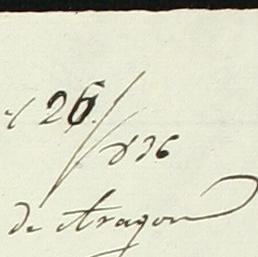 26
836
de Aragon